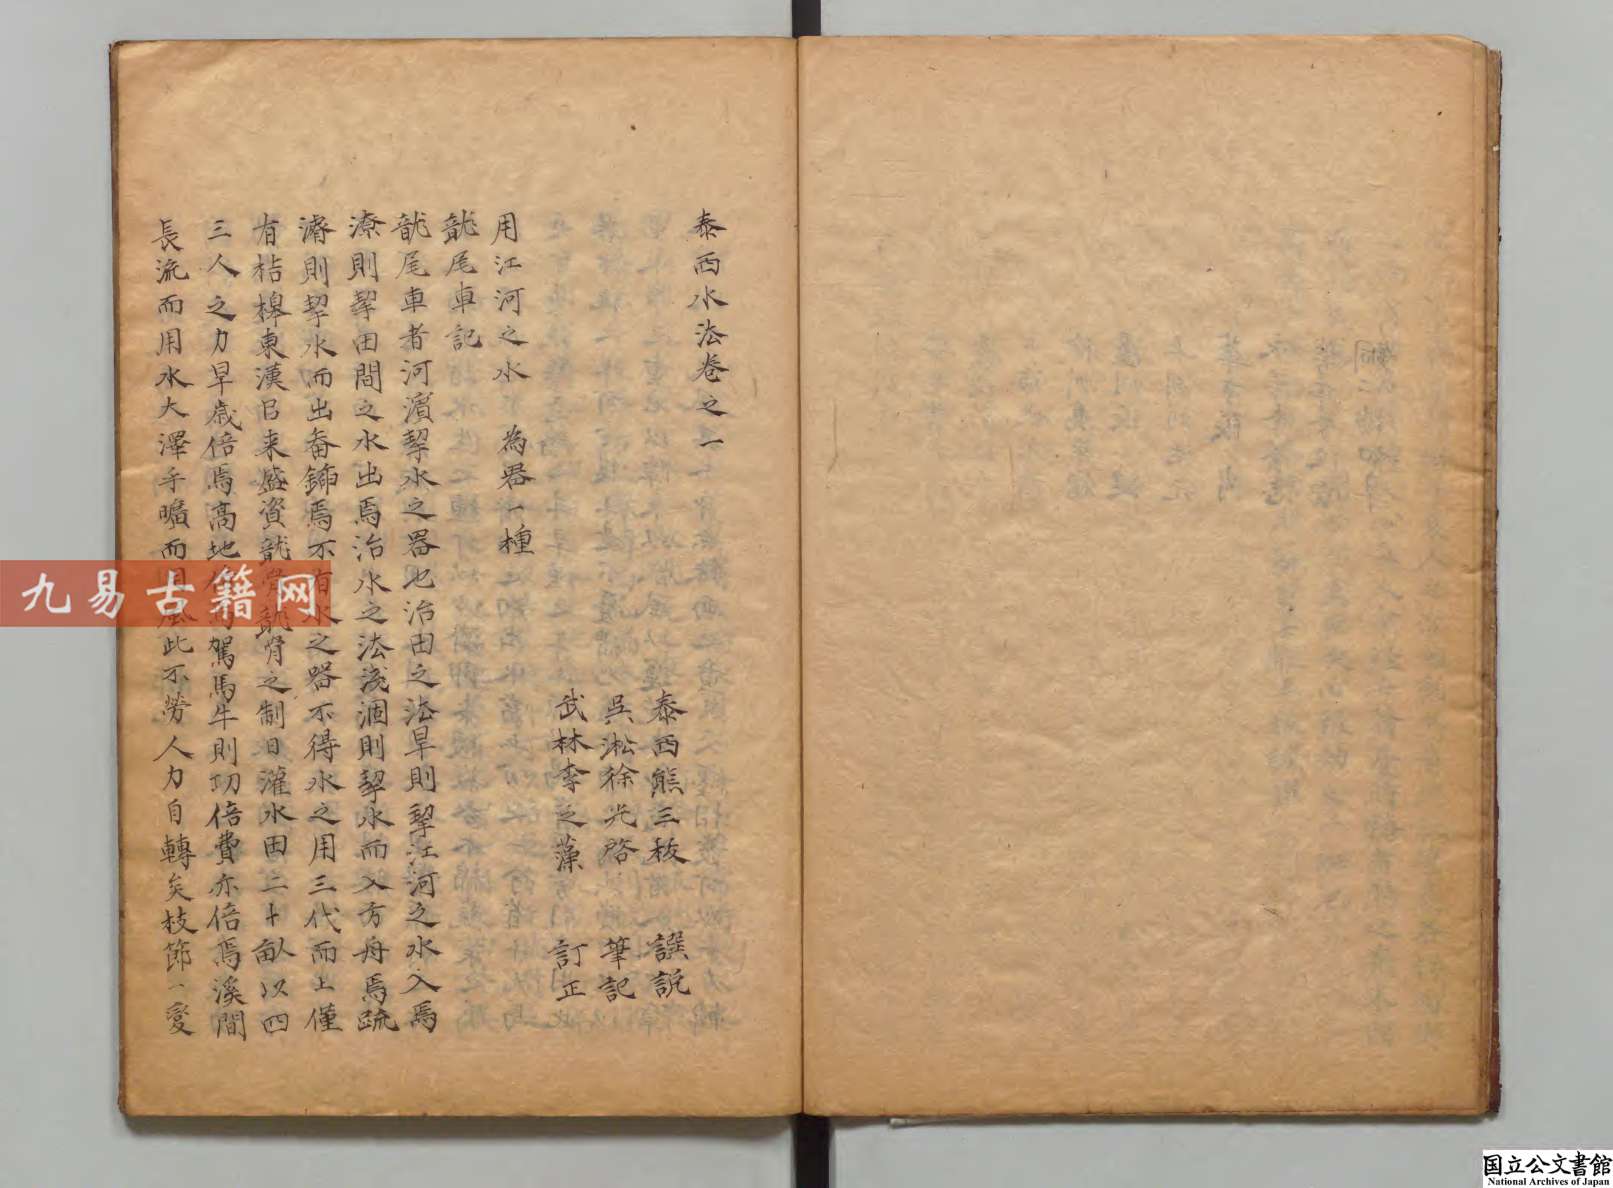 泰西水法卷之一
泰西熊三拔 譔説
吳淞徐光啓 筆記
武林李之藻 訂正
用江河之水 為器一種
龍尾車記
龍尾車者河濵挈水之器也治田之法旱則挈江河之水入焉
潦則挈田間之水出焉治水之法淺涸則挈水而入方舟焉疏
濬則挈水而出畚鍤焉不有水之器不得水之用三代而上僅
有桔槔東漢㠯来盛資龍骨龍骨之制日灌水田二十畝以四
三人之力旱歲倍焉高地倍焉駕馬牛則功倍費亦倍焉溪間
長流而用水大澤平曠而用風此不勞人力自轉矣枝節一變
九易古籍网
国立公文書館
National Archives of Japan